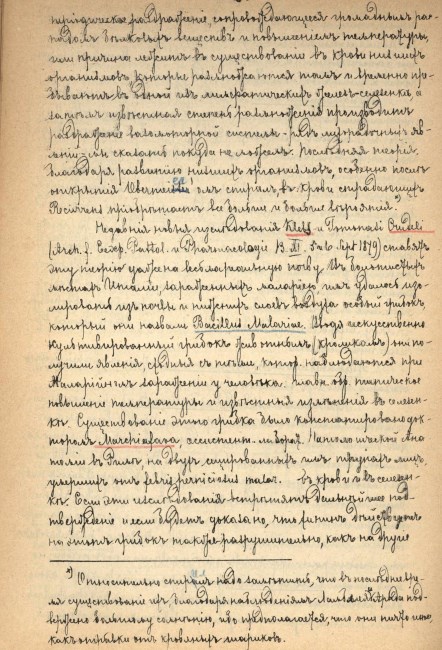 періодическое раздраженіе, сопровождающееся громаднымъ рас-
падомъ бѣлковыхъ веществъ и повышеніемъ температуры,
или причина лежитъ въ существованіи въ крови низшихъ
организмовъ которые размножаются тамъ и временно пре-
бываютъ въ одной изъ лимфатическихъ железъ-селезенкѣ а
затѣмъ извѣстная степень размноженія производитъ
раздраженіе вазомоторной системы - рядъ лихорадочныхъ яв-
леній - мы сказать покуда не можемъ. Послѣдняя теорія
благодаря развитію низшихъ организмовъ, особенно послѣ
открытія Obermeier'омъ спириллъ въ крови страдающихъ
Recurrens пріобрѣтаетъ все больше и больше вѣроятія. *)
Недавнія новыя изслѣдованія Klebs и Tommasi Crudeli
(Arch. f. Exper. Pathol. и Pharmacologie B. XI. 5 и 6 Sept 1879) ставятъ
эту теорію уже на весьма реальную почву. Въ болотистыхъ
мѣстахъ Италіи зараженныхъ маляріею, имъ удалось изо-
лировать изъ почвы и нижнихъ слоевъ воздуха особый грибокъ,
который они назвали Bacillus Malariae. Вводя искусственно
культивированный грибокъ животнымъ (кроликамъ) они по-
лучили явленія, сходныя съ тѣми, котор. наблюдаются при
Маларійномъ зараженіи у человѣка: главн. обр. типическое
повышеніе температуры и извѣстныя измѣненія въ селезен-
кѣ. Существованіе этого грибка было констатировано док-
торомъ Marchiafava ассистент. лабораt. Патологической Ана-
томіи въ Римѣ, на двухъ сецированныхъ имъ трупахъ лицъ,
умершихъ отъ febris perniciosus malar. - въ крови и въ селезен-
кѣ. Если эти изслѣдованія встрѣтятъ дальнѣйшее под-
твержденіе и если будетъ доказано, что хининъ дѣйствуетъ
на этотъ грибокъ также разрушительно, какъ на другіе
*) Относительно спириллъ надо замѣтить, что въ послѣднее вре-
мя существованіе ихъ, благодаря наблюденіямъ под-
вержено большому сомнѣнію, ибо предполагается, что они ничто иное,
какъ отрывки отъ кровяныхъ шариковъ.